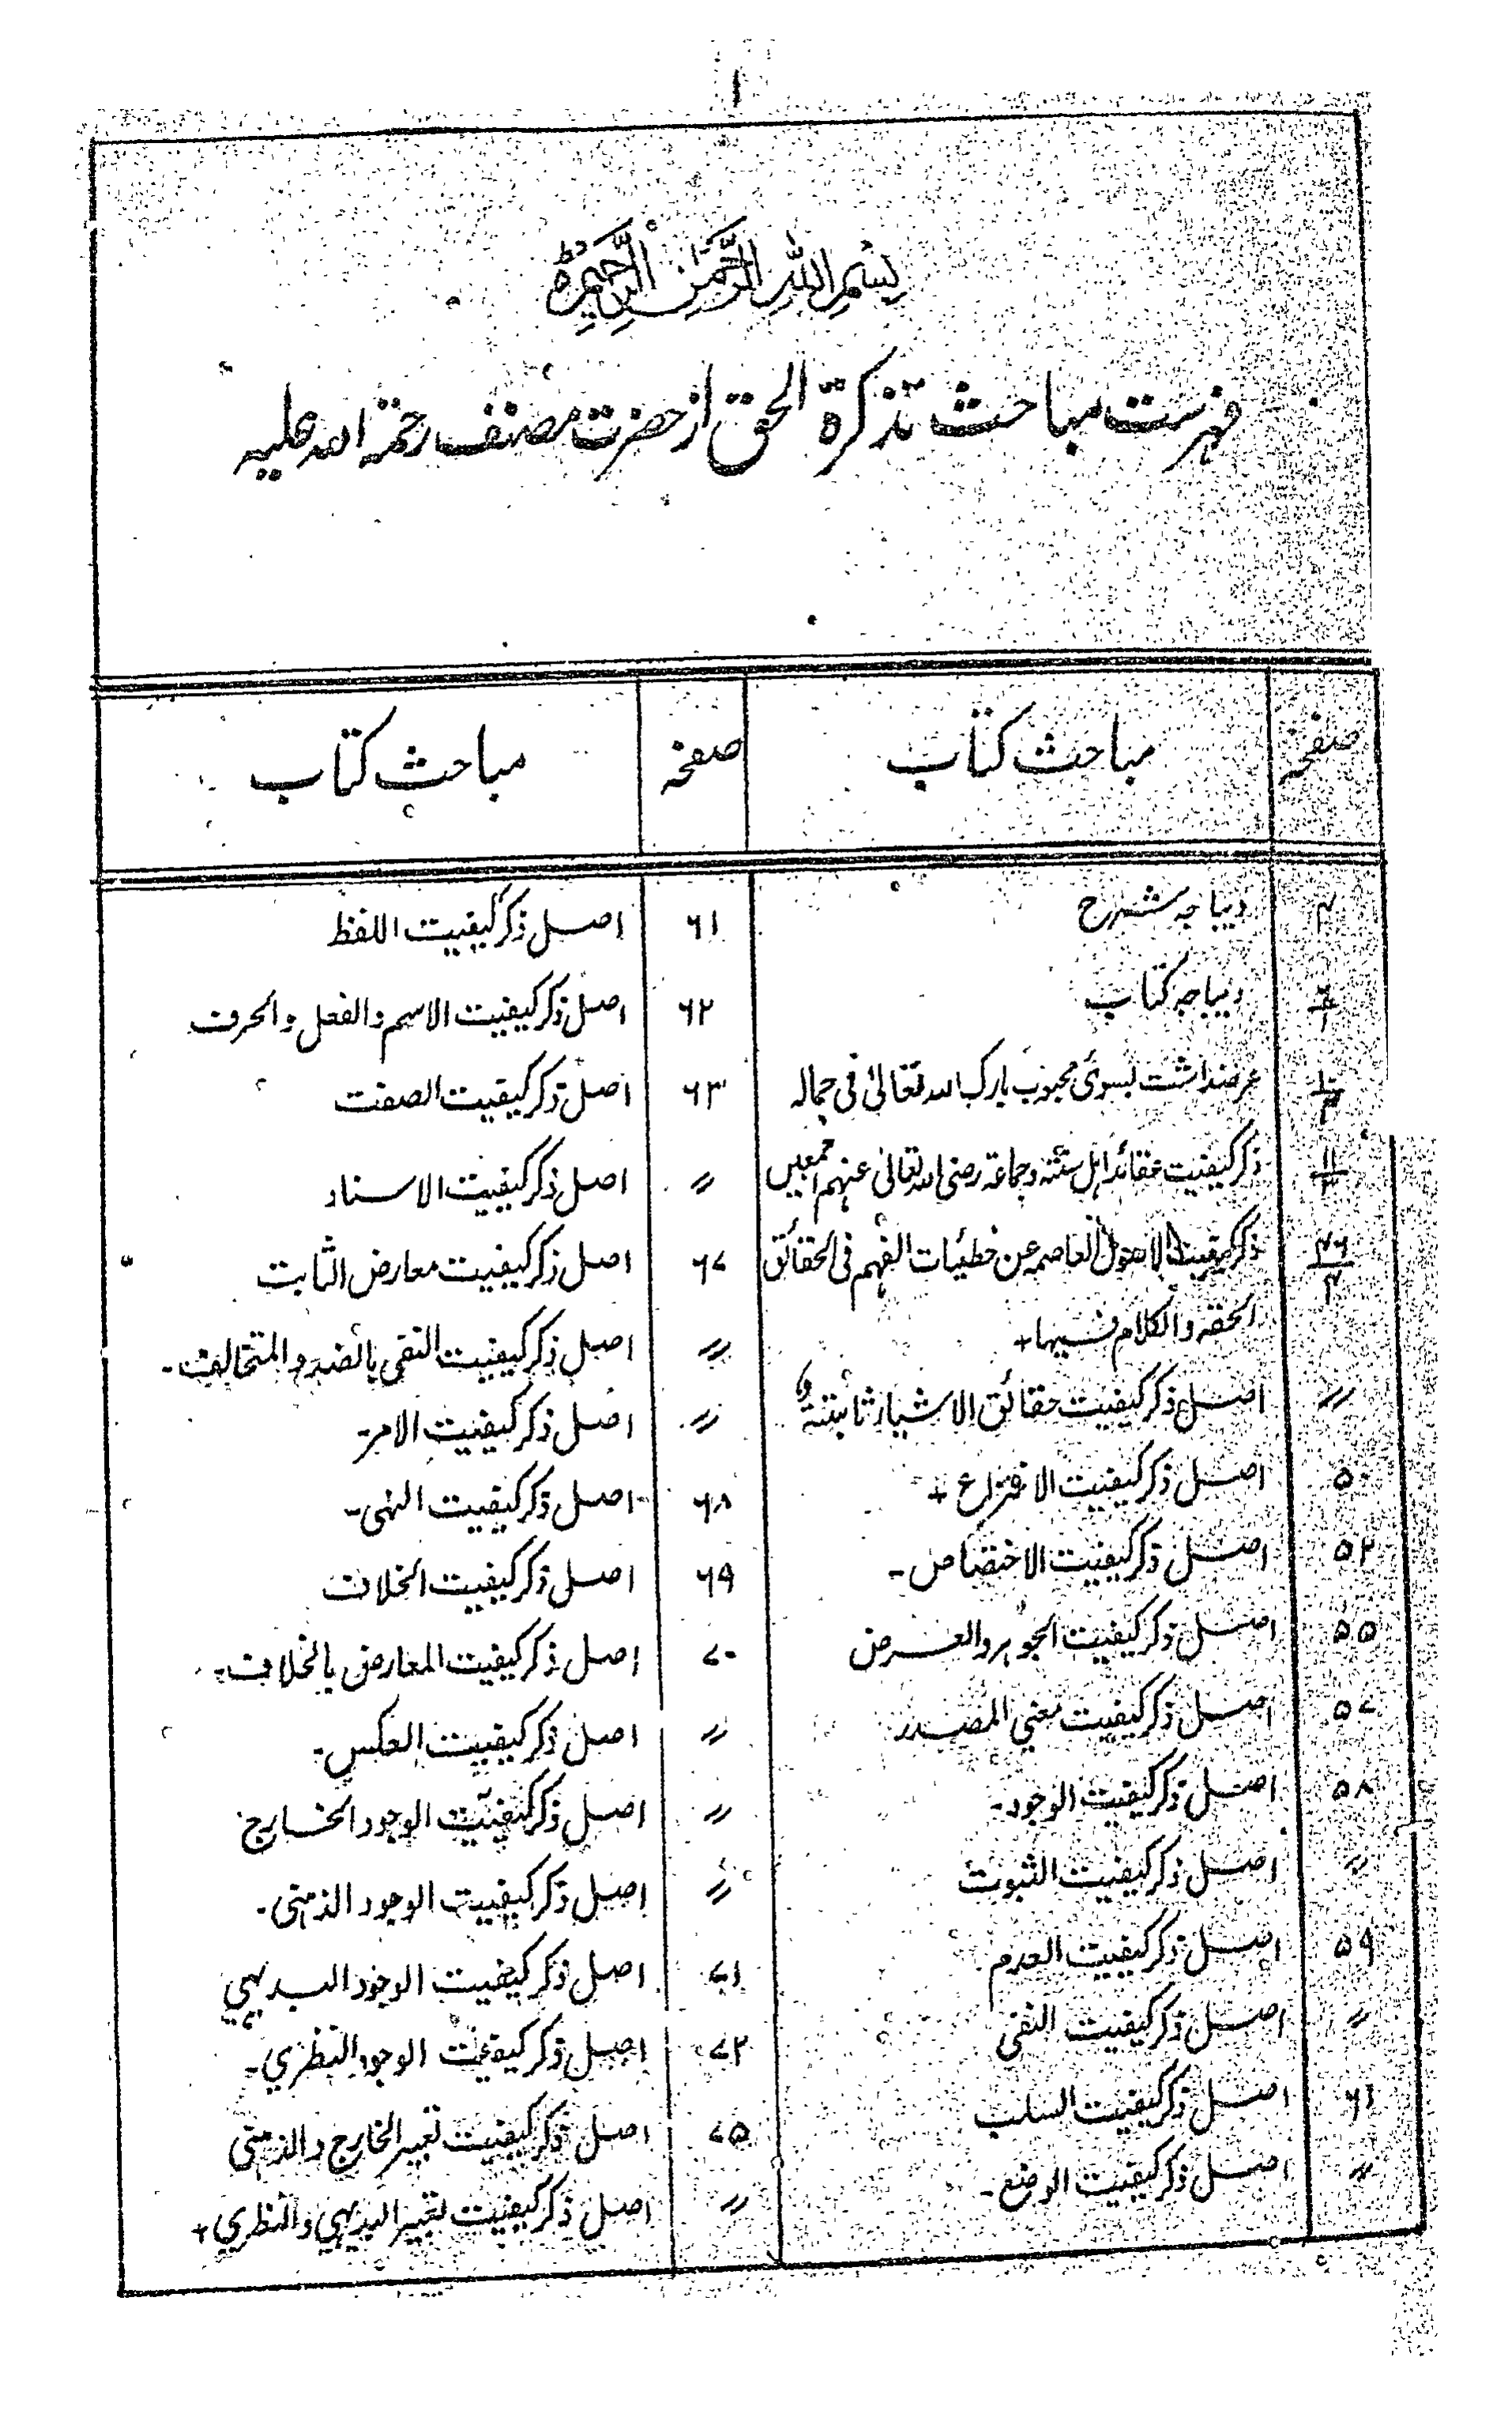 ۱
بسم الله الرحمن الرحیم
فهرست مباحث تذکرة الحق از حضرت مصنف رحمة الله علیه
صفحه مباحث کتاب صفحه مباحث کتاب
۲ دیباجه شرح
دیباجه کتاب
عرضداشت بسوی محبوب بارک الله تعالی فی جماله
ذکر کیفیت عقائد اہل سنته وجماعة رضی الله تعالی عنہم اجمعین
ذکر کیفیت الاصول العاصمه عن خطئیات الفہم فی الحقائق
الحقه والکلام فیہا+
〃 اصل ذکر کیفیت حقائق الاشیاء ثابتة
۵۰ اصل ذکر کیفیت الاقتراع +
۵۲ اصل ذکر کیفیت الاختصاص۔
۵۵ اصل ذکر کیفیت الجوہر والعرض
۵۷ اصل ذکر کیفیت معنی المصدر
۵۸ اصل ذکر کیفیت الوجود۔
〃 اصل ذکر کیفیت الثبوت
۵۹ اصل ذکر کیفیت العدم
〃 اصل ذکر کیفیت النفی
۶۱ اصل ذکر کیفیت السلب
〃 اصل ذکر کیفیت الوضع۔
۶۱ اصل ذکر کیفیت اللفظ
۶۲ اصل ذکر کیفیت الاسم والفعل والحرف
۶۳ اصل ذکر کیفیت الصفت
〃 اصل ذکر کیفیت الاسناد
۶۷ اصل ذکر کیفیت معارض الثابت
〃 اصل ذکر کیفیت النفی بالضد والمتخالف۔
〃 اصل ذکر کیفیت الامر۔
۶۸ اصل ذکر کیفیت النہی۔
۶۹ اصل ذکر کیفیت الخلاف
۷۰ اصل ذکر کیفیت المعارض بالخلاف۔
〃 اصل ذکر کیفیت العکس۔
〃 اصل ذکر کیفیت الوجود الخارج
〃 اصل ذکر کیفیت الوجود الذہنی۔
۷۱ اصل ذکر کیفیت الوجود البدیہی
۷۲ اصل ذکر کیفیت الوجود النظری۔
۷۵ اصل ذکر کیفیت تعبیر الخارج والذہنی
〃 اصل ذکر کیفیت تعبیر البدیہی والنظری+